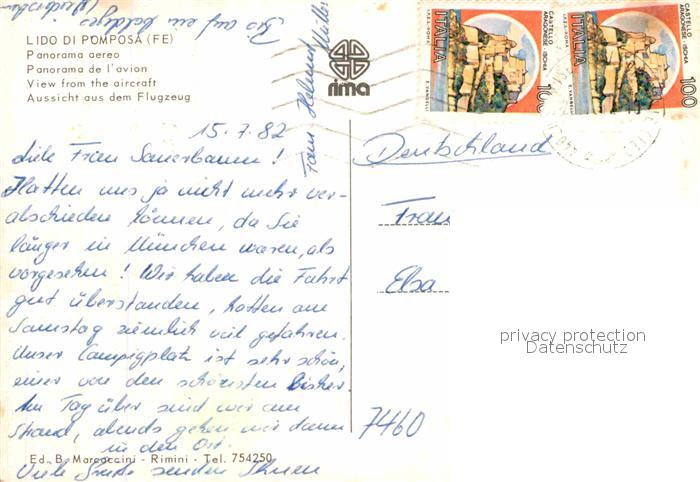 LIDO DI POMPOSA (FE)
Panorama aereo
Panorama de l'avion
View from the aircraft
Aussicht aus dem Flugzeug
rima
CASTELLO
ARAGONESE ISCHIA
I.P.Z.S.-ROMA
ITALIA
100
E. VANGELLI
CASTELLO
ARAGONESE ISCHIA
I.P.Z.S.-ROMA
ITALIA
100
E. VANGELLI
15.7.82
Liebe Frau Sauerbaum!
Hatten uns ja nicht mehr ver-
abschieden können, da Sie
länger in München waren, als
vorgesehen! Wir haben die Fahrt
gut überstanden, hatten am
Samstag ziemlich viel gefahren.
Unser Campingplatz ist sehr schön,
einer von den schönsten bisher.
Am Tag über sind wir am
Strand, abends gehen wir dann
in den Ort.
Viele Grüße senden Ihnen
Fam Helmut Müller
Deutschland
Frau
Elsa
7460
privacy protection
Datenschutz
Ed. B. Marcaccini - Rimini - Tel. 754250